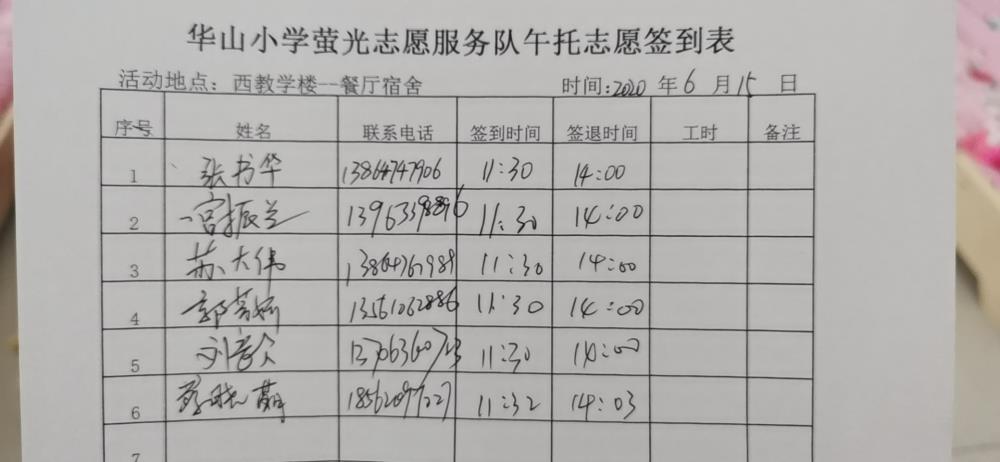 华山小学萤光志愿服务队午托志愿签到表
活动地点：西教学楼--餐厅宿舍 时间:2020 年 6 月 15 日
序号 姓名 联系电话 签到时间 签退时间 工时 备注
1 张书华 13864747906 11:30 14:00
2 宫振兰 11:30 14:00
3 苏大伟 11:30 14:00
4 13561062886 11:30 14:00
5 11:30 14:00
6 11:32 14:03
7